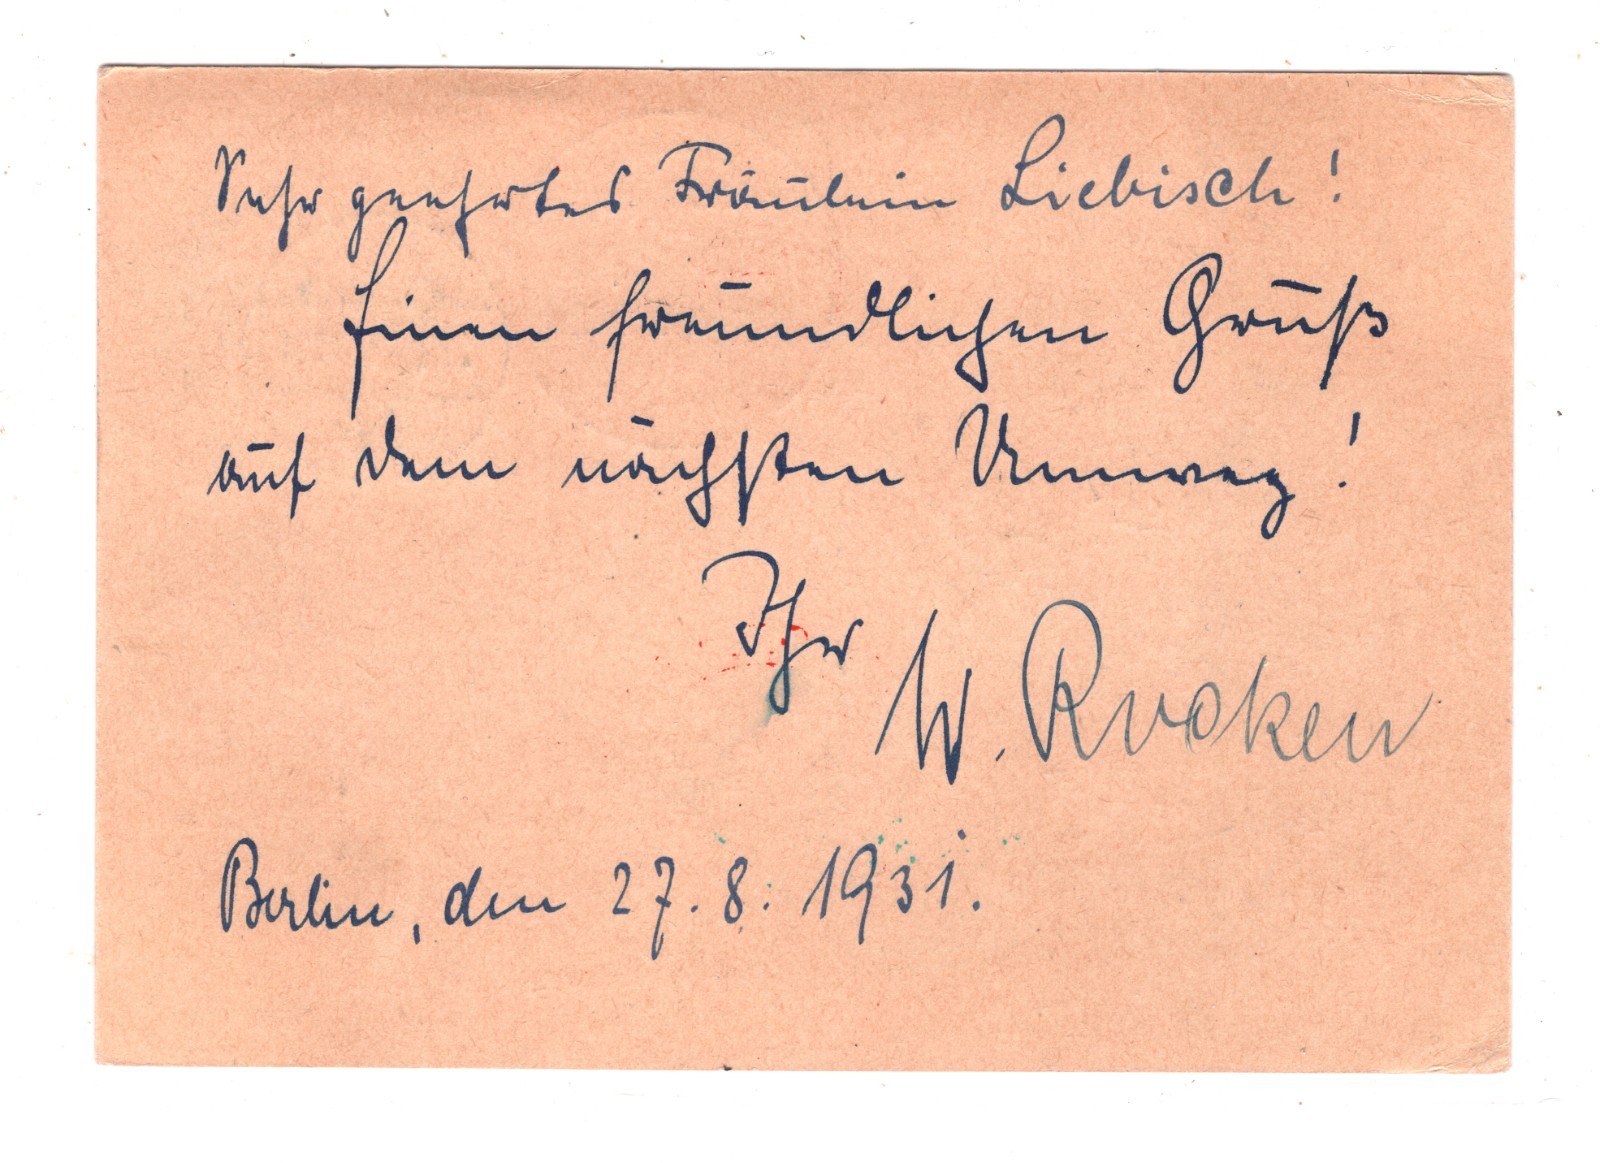 Sehr geehrtes Fräulein Liebisch!
Einen freundlichen Gruß
auf dem nächsten Umweg!
Ihr
W. Rucken
Berlin, den 27. 8. 1931.